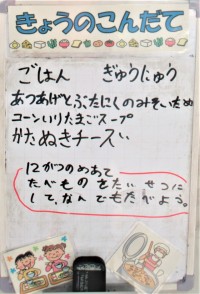 きょうのこんだて
ごはん ぎゅうにゅう
あつあげとぶたにくのみそいため
コーンいりたまごスープ
かたぬきチーズ
12がつのめあて
たべものをたいせつに
して、なんでもたべよう。